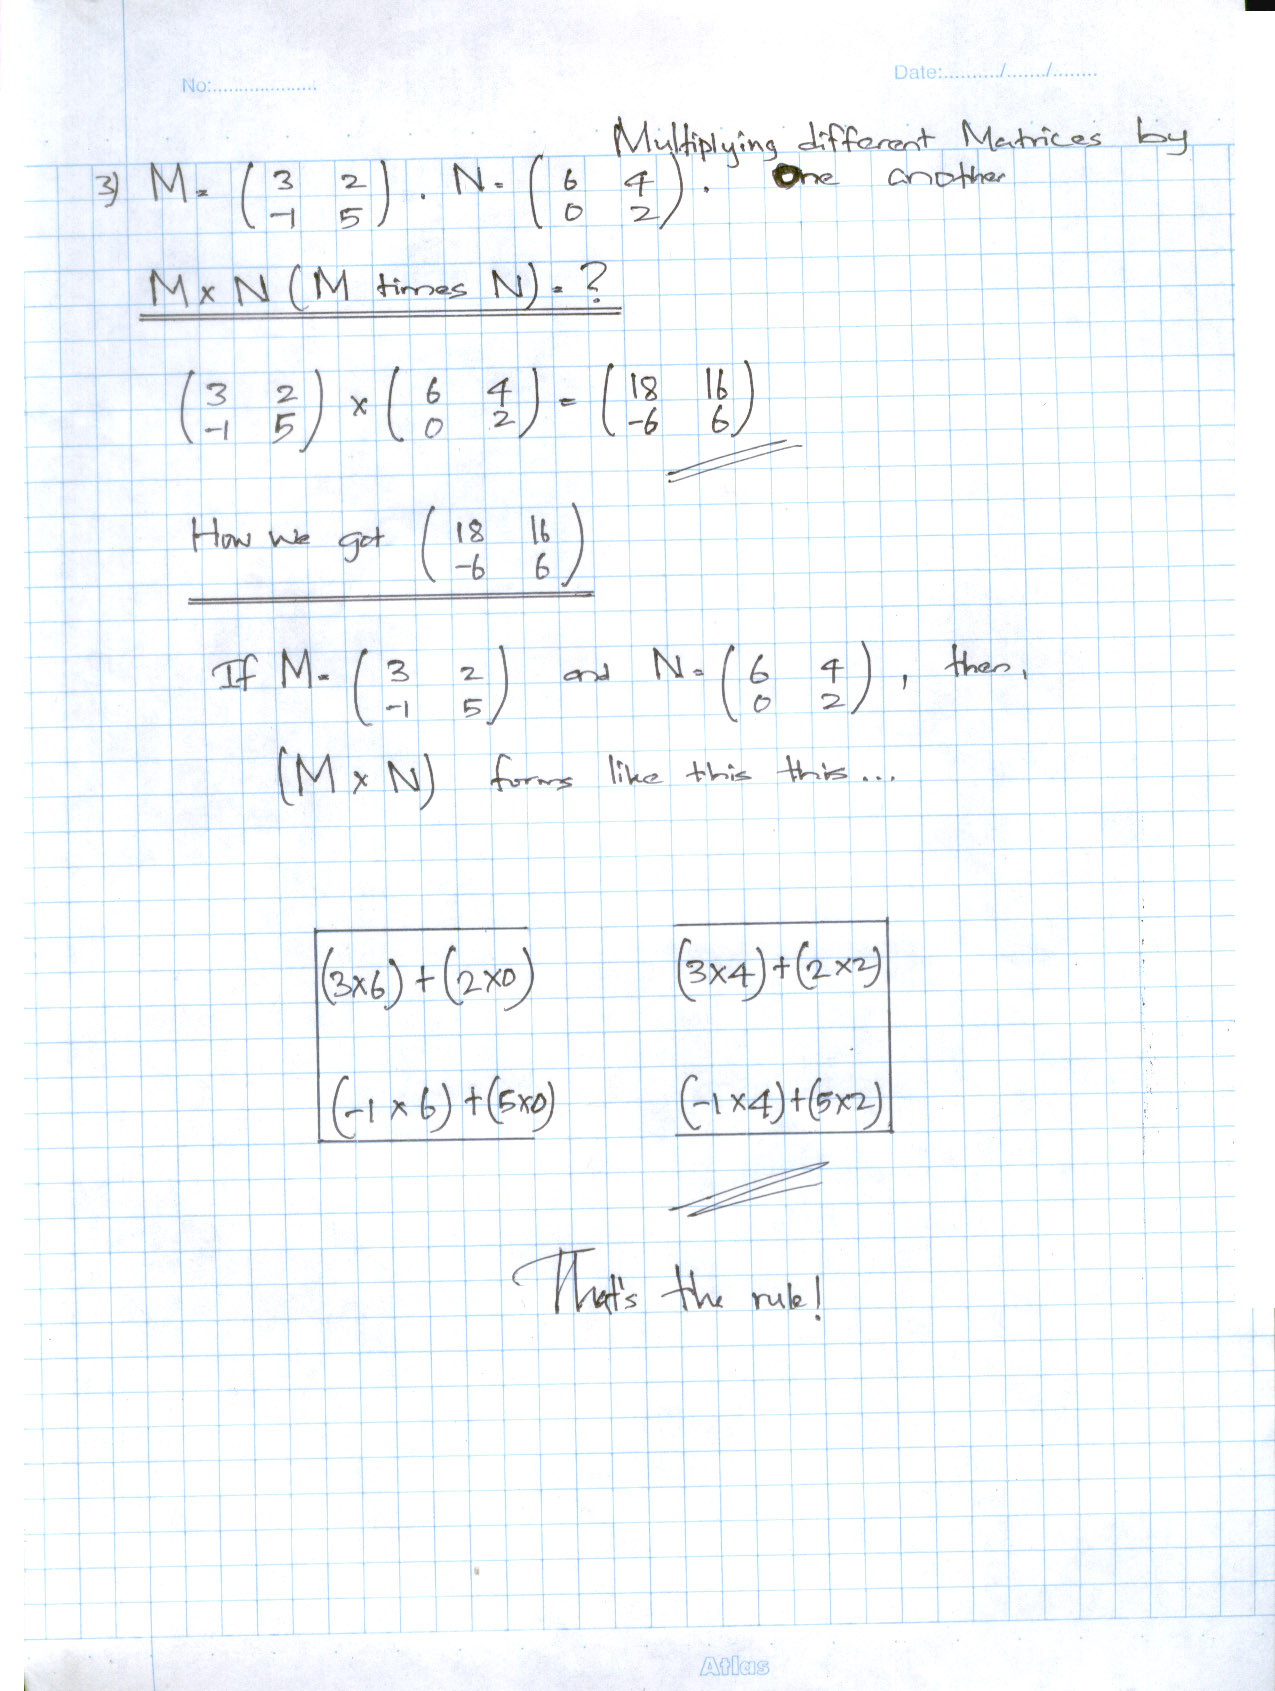 No:.................... Date:........../......./........
Multiplying different Matrices by
One another
3) M = ( 3 2 ) . N = ( 6 4 ) .
( -1 5 ) ( 0 2 )
M x N (M times N) = ?
( 3 2 ) x ( 6 4 ) = ( 18 16 )
( -1 5 ) ( 0 2 ) ( -6 6 )
How we got ( 18 16 )
( -6 6 )
If M = ( 3 2 ) and N = ( 6 4 ) , then,
( -1 5 ) ( 0 2 )
(M x N) forms like this this...
(3x6) + (2x0) (3x4) + (2x2)
(-1 x 6) + (5x0) (-1 x4) + (5x2)
That's the rule!
Atlas